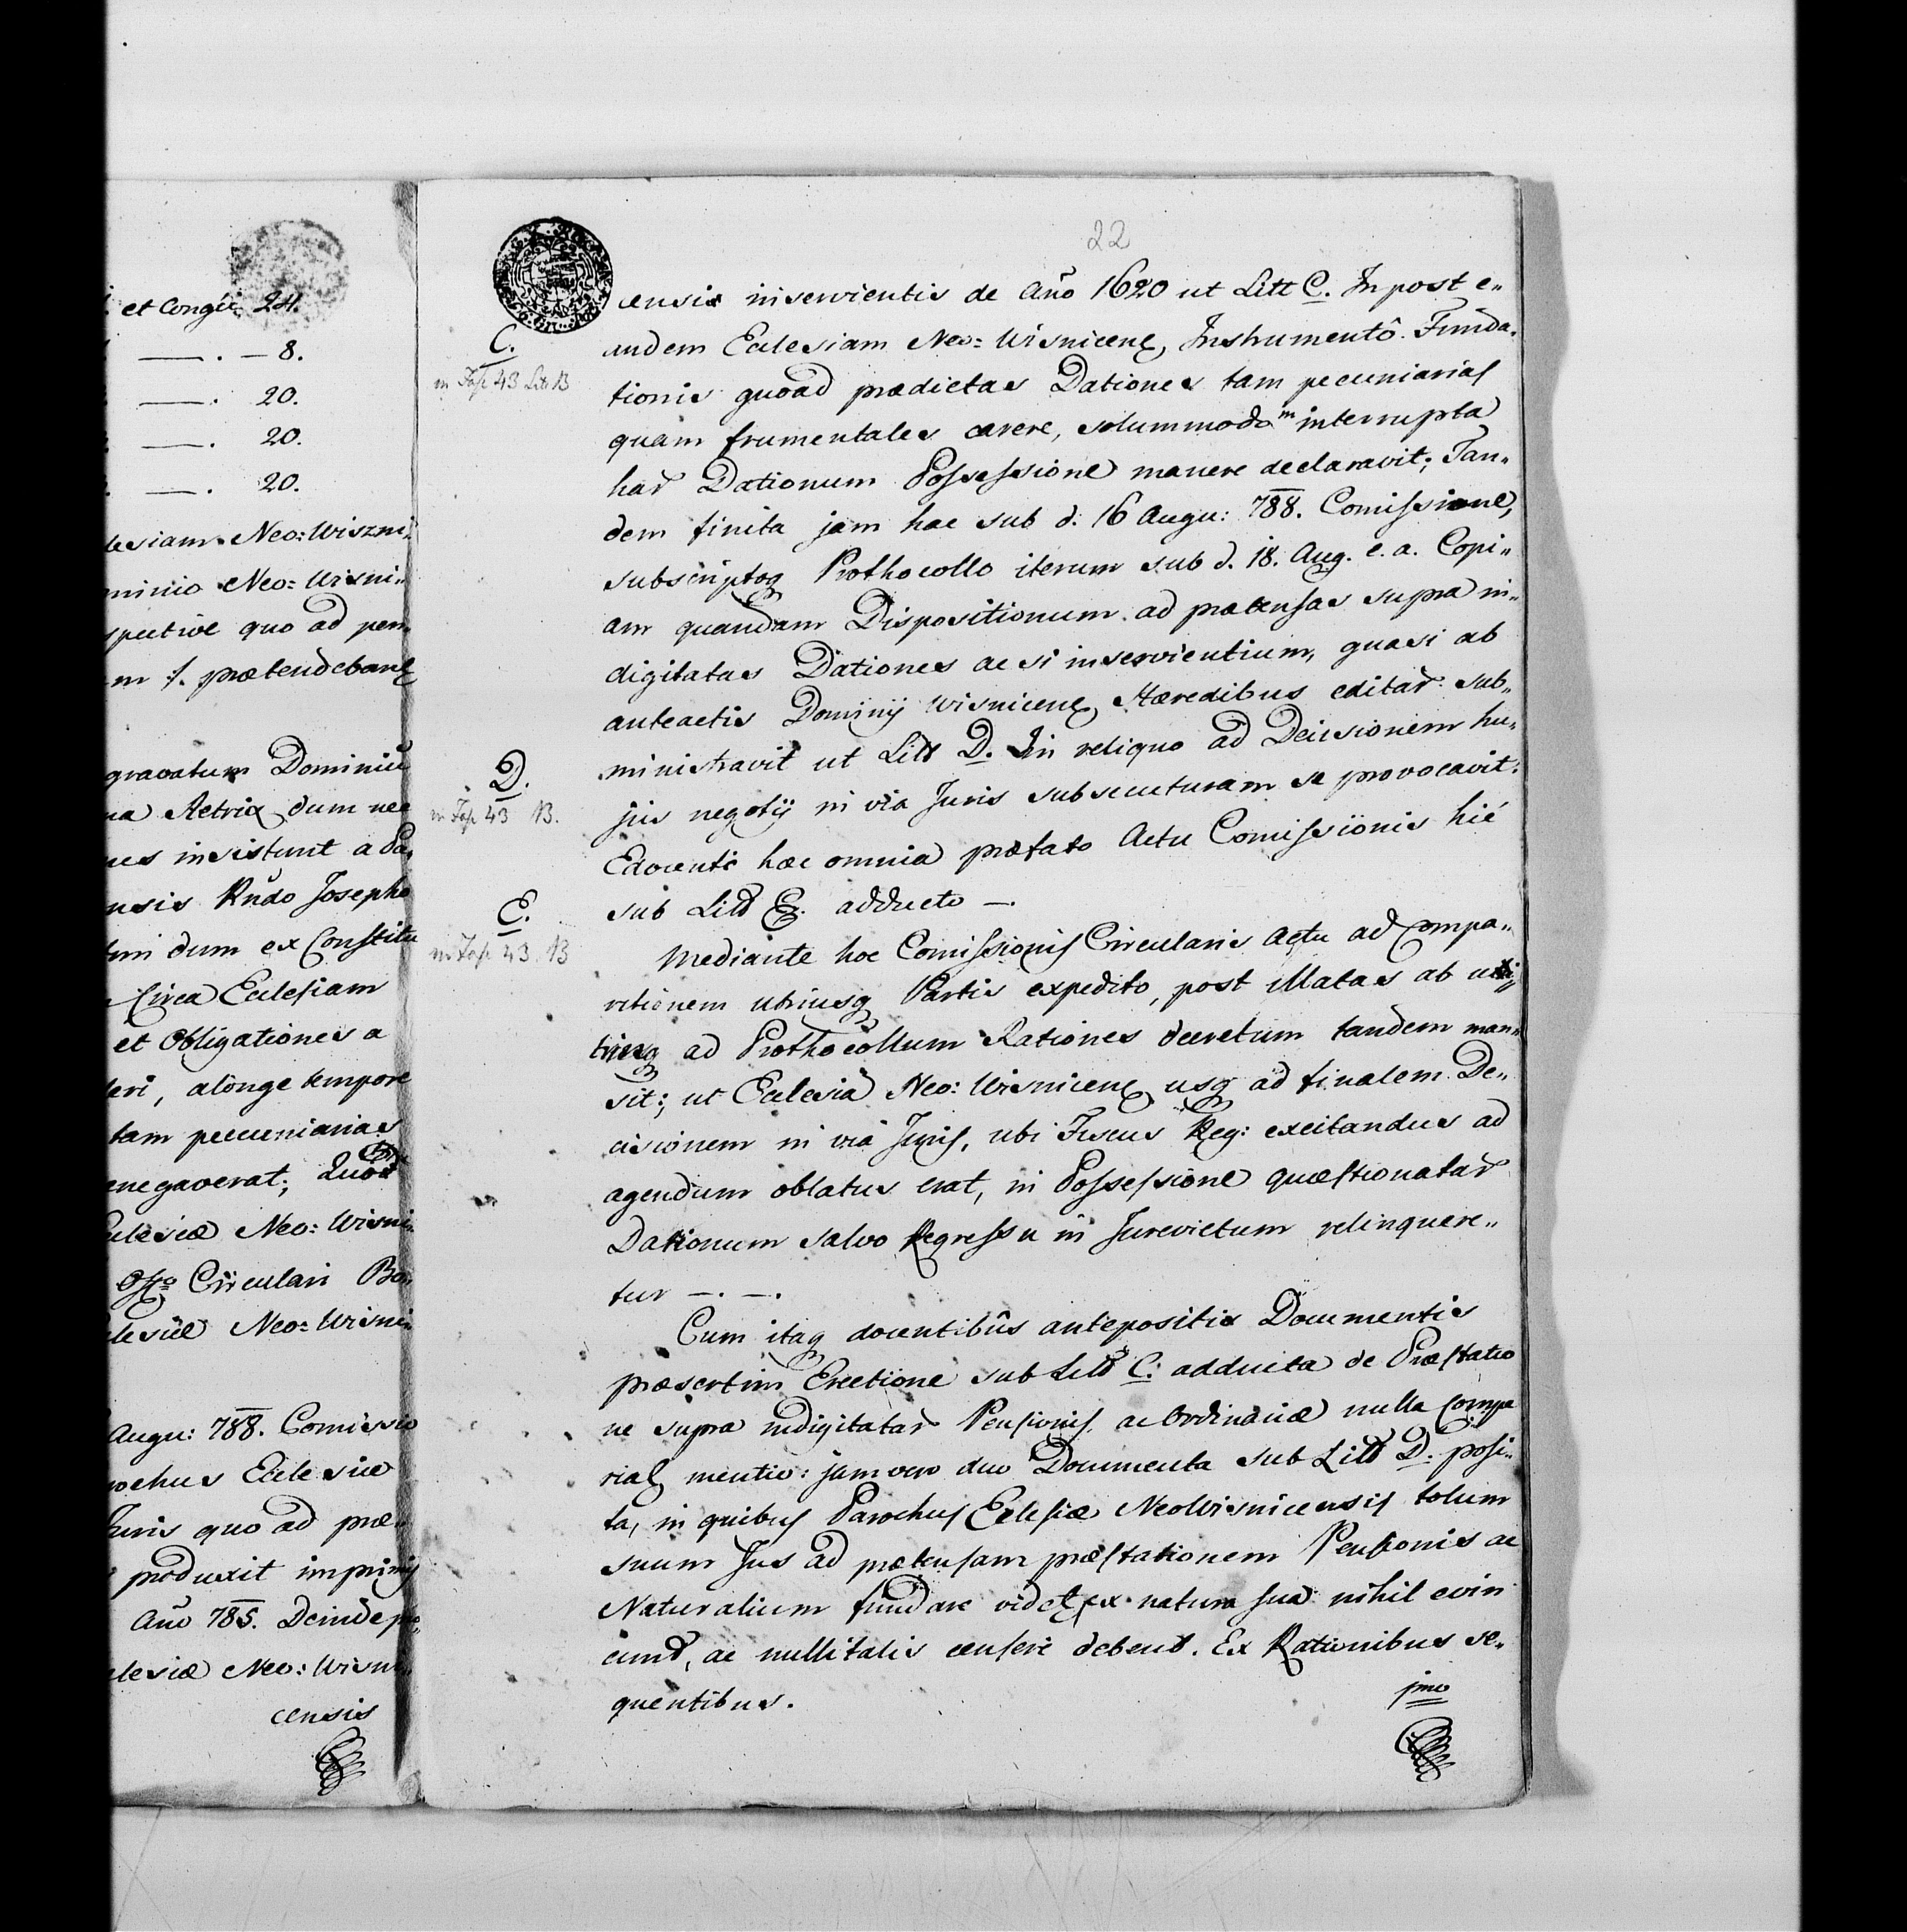 et Congii 24.
—. — 8.
—. 20.
—. 20.
—. 20.
lesiam Neo: Wiszni„
minio Neo: Wisni„
spective quo ad pen„
prætendebant
gravatum Dominiũ
na Actrix dum nec
ues insistunt a Da„
nsis Rñdo Josepho
dum ex Constitu
Circa Ecclesiam
et Obligationes a
leri, a longe tempore
tam pecuniarias
enegaverat; Quod
clesiæ Neo: Wisni„
Offo Circulari Bo„
clesiæ Neo: Wisni„
Augu: 788. Comissio
rochus Ecclesiæ
Juris quo ad præ„
produxit imprimis
Año 785. Deinde
clesiæ Neo: Wisni„
censis
22
censis inservientis de Año 1620 ut Litt C. In post e„
C.
andem Ecclesiam Neo: Wisnicens, Instrumentô Funda„
in Fasc 43 Lit. B
tionis quoad prædictas Dationes tam pecuniarias
quam frumentales carere, solummodo in interrupta
har Dationum Possessione manere declaravit; Tan„
dem finita jam hac sub d. 16 Augu: 788. Comissione,
subscriptoq Prothocollo iterum sub d. 18. Aug. e. a. Copi„
am quandam Dispositionum ad prætensas supra in„
digitatas Dationes ac si inservientium, quasi ab
anteactis Dominij Wisnicens, Hæredibus editar sub„
D.
ministravit ut Litt D. In reliquo ad Decisionem hu„
in Fasc 43 B.
jus negotij in via Juris subsecuturam se provocavit.
Edocenti hæc omnia præfato Actu Comissionis hic
E.
sub Litt E. adducto —.
in Fasc 43. B
Mediante hoc Comissionis Circularis Actu ad Compa„
ritionem utriusq Partis expedito, post illatas ab u„
trinsq ad Prothocollum Rationes decretum tandem man„
sit; ut Ecclesia Neo: Wisnicens usq ad finalem De„
cisionem in via Juris, ubi Fiscus Reg: excitandus ad
agendum oblatus erat, in Possessione quæstionatar
Dationum salvo Regressu in Jurevictum relinquere„
tur —. —.
Cum itaq docentibus antepositis Documentis
præsertim Erectione sub Litt C. adducta de Præstatio
ne supra indigitatar Pensionis, ac Ordinariæ nulla Compa
riat mentio: jam vero duo Documenta sub Litt D. posi„
ta, in quibus Parochus Ecclesiæ NeoWisnicensis totum
suum Jus ad prætensam præstationem Pensionis ac
Naturalium fundare videt, ex natura sua nihil evin
cunt, ac nullitatis censeri debent. Ex Rationibus se„
quentibus.
1mo